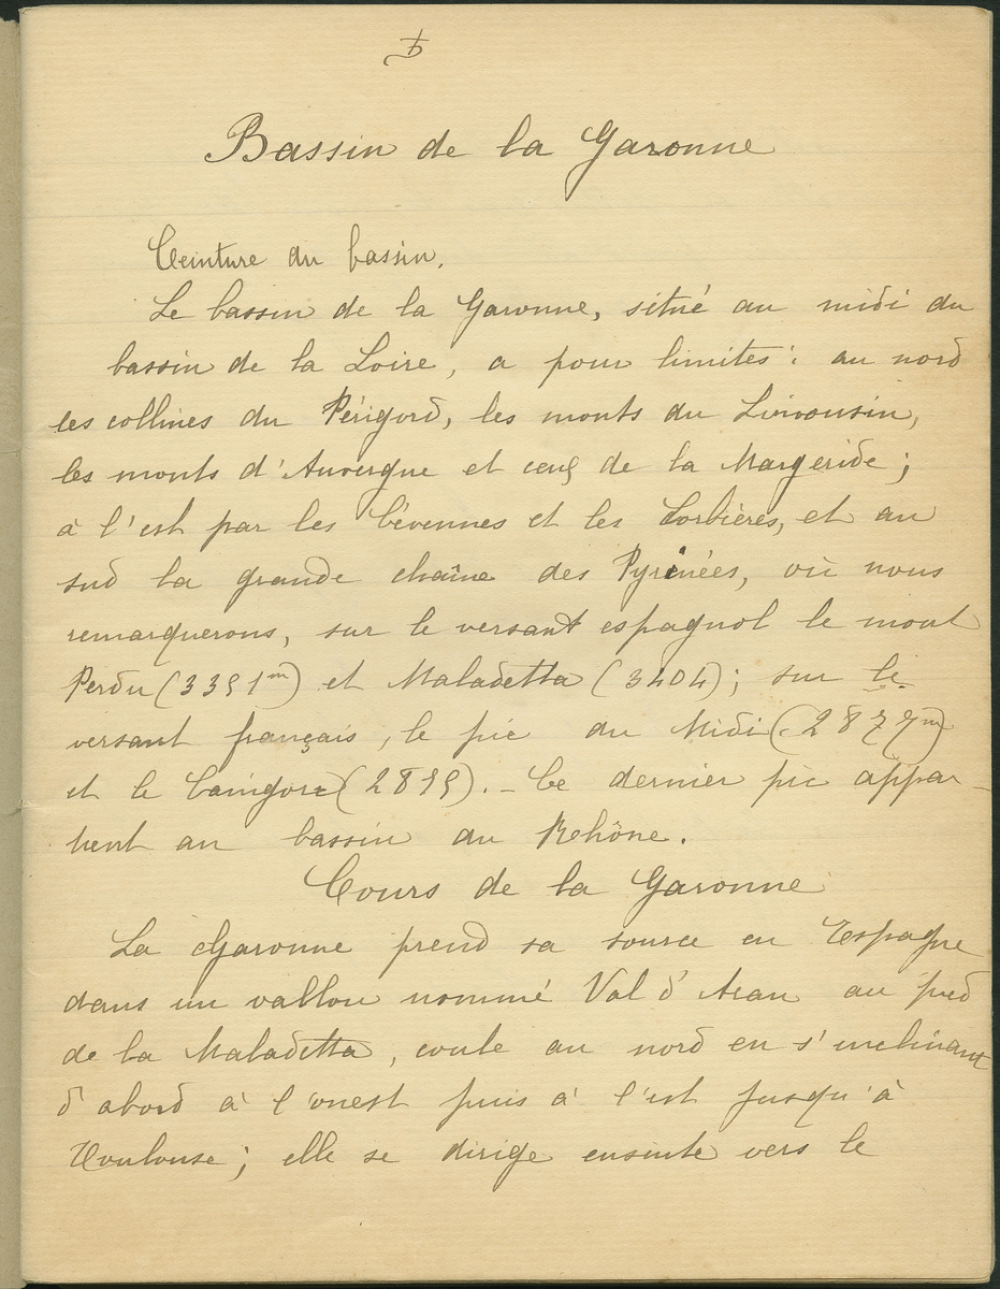 Bassin de la Garonne
Ceinture du bassin.
Le bassin de la Garonne, situé au midi du
bassin de la Loire, a pour limites : au nord
les collines du Périgord, les monts du Limousin,
les monts d'Auvergne et ceux de la Margeride ;
à l'est par les Cévennes et les Corbières, et au
sud la grande chaîne des Pyrénées, où nous
remarquerons, sur le versant espagnol le mont
Perdu (3351m) et Maladetta (3404) ; sur le
versant français, le pic du Midi (2877m)
et le Canigore (2785). - Ce dernier pic appar-
tient au bassin du Rhône.
Cours de la Garonne
La Garonne prend sa source en Espagne
dans un vallon nommé Val d'Aran au pied
de la Maladetta, coule au nord en s'inclinant
d'abord à l'ouest puis à l'est jusqu'à
Toulouse ; elle se dirige ensuite vers le